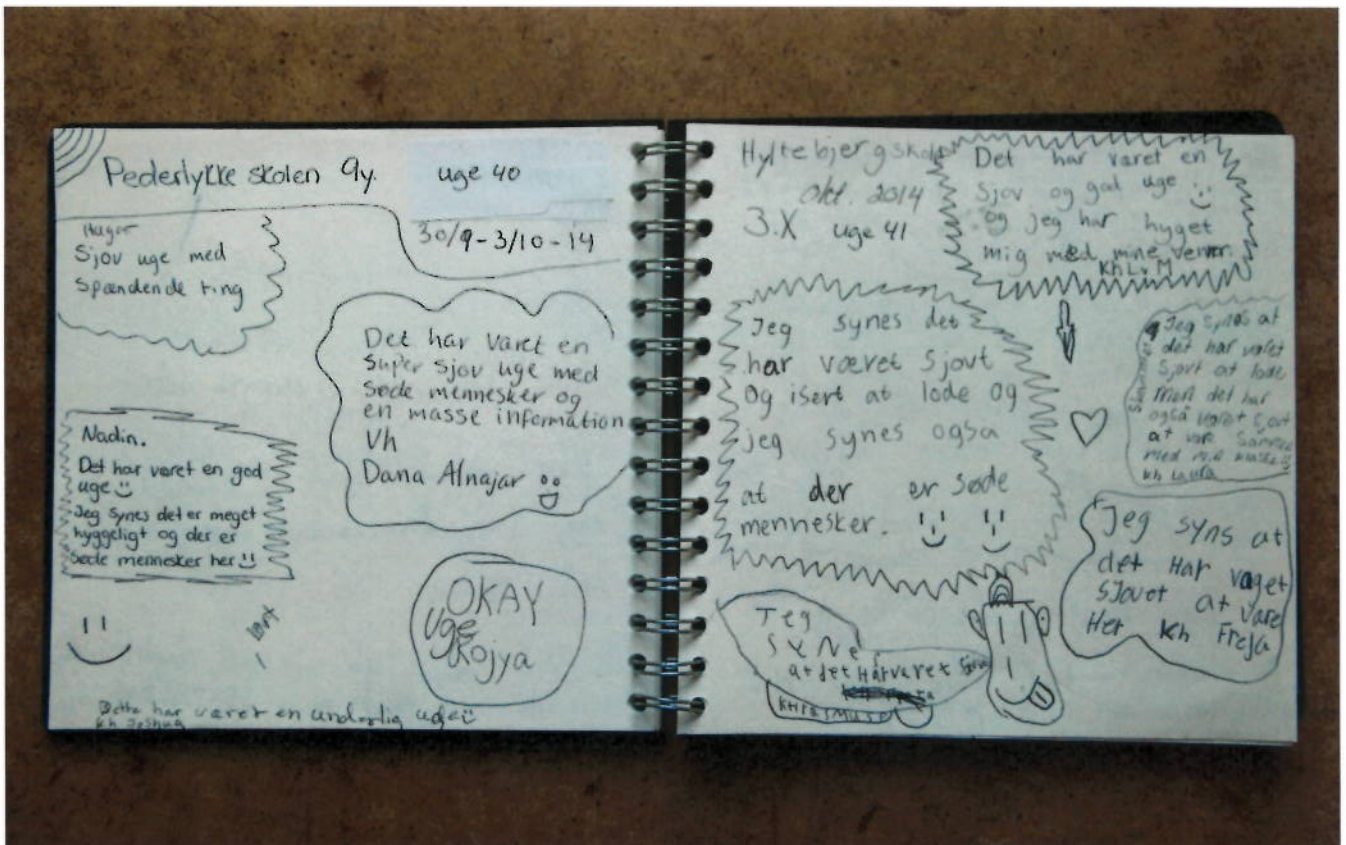 Pederlykke skolen 9y.
uge 40
30/9-3/10-14
Hagar
Sjov uge med
Spændende ting
Det har været en
Super sjov uge med
Søde mennesker og
en masse information
Vh
Dana Alnajar
Nadin.
Det har været en god
uge
Jeg synes det er meget
hyggeligt og der er
Søde mennesker her
OKAY
uge
Kojya
Dette har været en underlig uge
kh Joshua
Hyltebjergskole
okt. 2014
3.X uge 41
Det har været en
Sjov og god uge
og jeg har hyget
mig med mine venner.
Kh L v M
Jeg synes det
har været Sjovt
Og isert at lode og
jeg synes også
at der er søde
mennesker.
Jeg synes at
det har været
Sjovt at lode
men det har
også været sjovt
at være sammen
med min klasse
kh Laura
Jeg syns at
det Har vaget
SJovet at være
Her Kh Freja
Jeg
SYNe
at det Har været sjov
KH rasmus